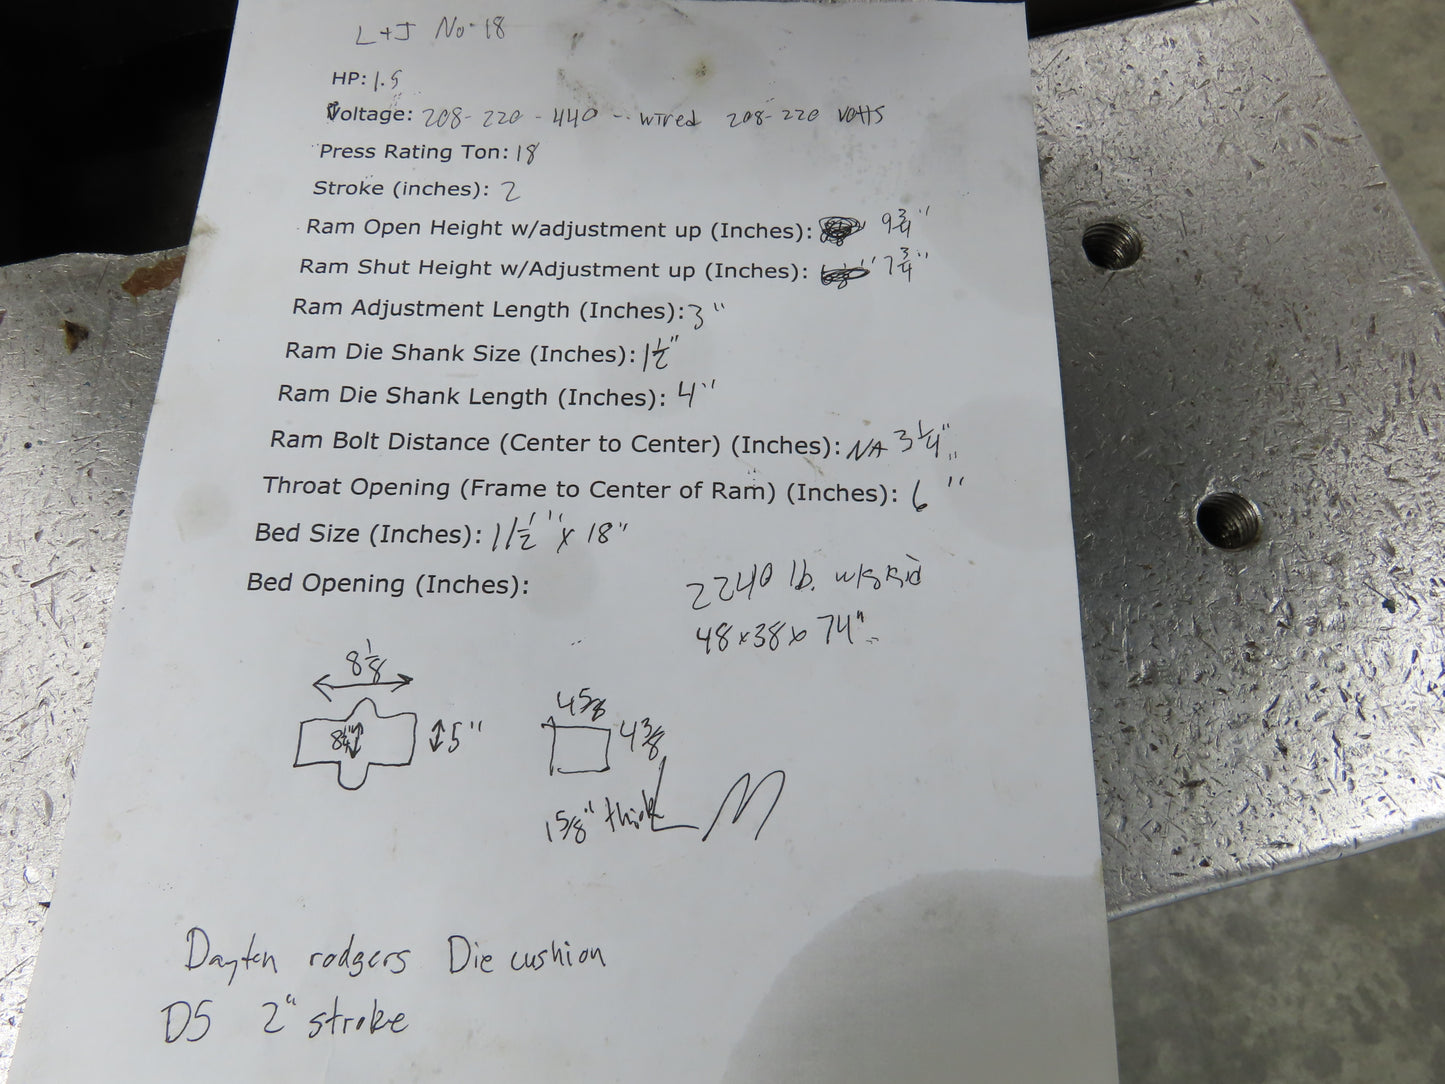 L+J No. 18
HP: 1.5
Voltage: 208-220-440 -- wired 208-220 volts
Press Rating Ton: 18
Stroke (inches): 2
Ram Open Height w/adjustment up (Inches): 9 3/4"
Ram Shut Height w/Adjustment up (Inches): 7 3/4"
Ram Adjustment Length (Inches): 3"
Ram Die Shank Size (Inches): 1 1/2"
Ram Die Shank Length (Inches): 4"
Ram Bolt Distance (Center to Center) (Inches): NA 3 1/4"
Throat Opening (Frame to Center of Ram) (Inches): 6"
Bed Size (Inches): 11 1/2" x 18"
Bed Opening (Inches):
2240 lb. w/skid
48x38x74"
8 1/8
5"
4 5/8
4 3/8
1 5/8" thick
Dayten rodgers Die cushion
D5 2" stroke